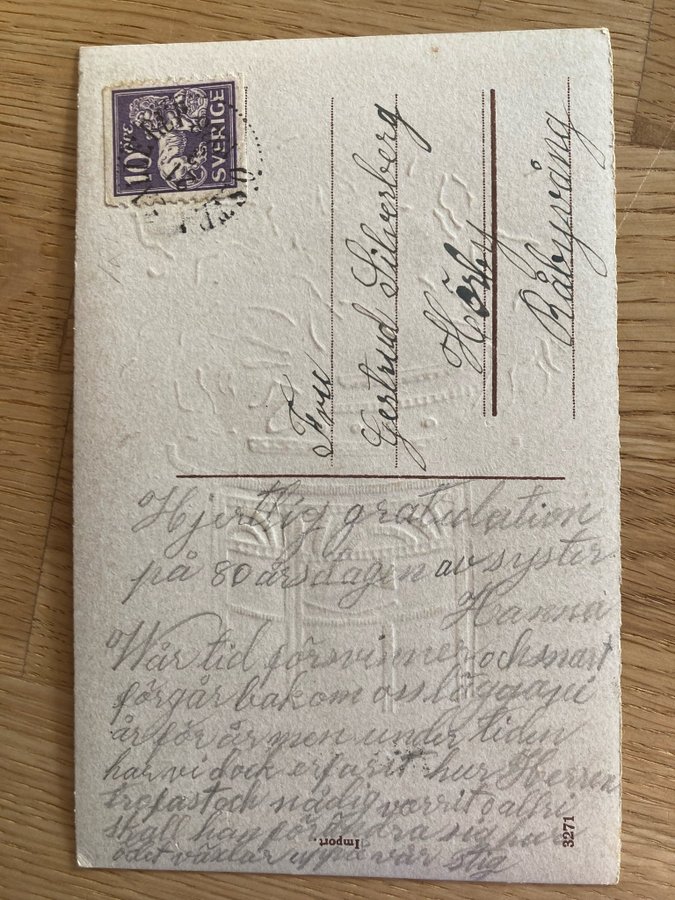 10 ÖRE
SVERIGE
Fru
Gertrud Silverberg
Hörby
Råbyvång
Hjertlig gratulation
på 80 årsdagen av syster
Hanna
Wår tid försvinner och snart
förgår bakom oss läggapi
år för år men under tiden
har vi dock erfarit hur Herren
trofast och nådig varrit o alfri
skall han förändra sig
o det växlar uppå vår stig
Import.
3271